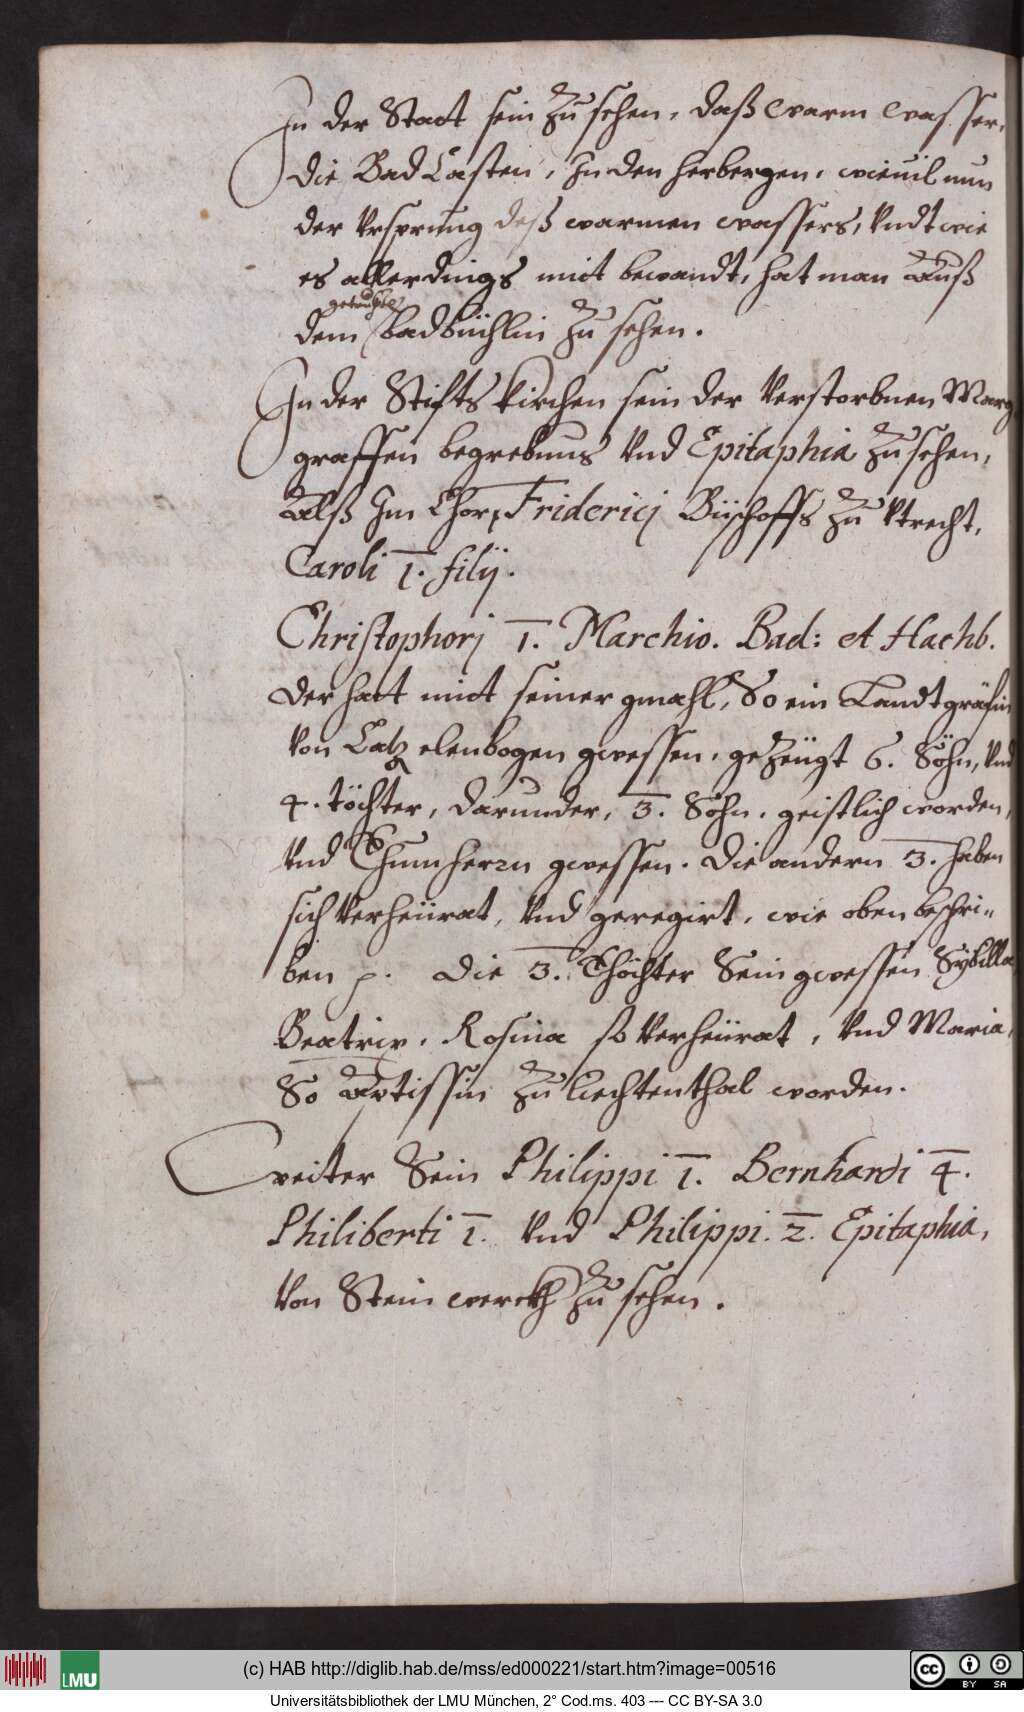 In der Statt sein zu sehen, daß warm wasser,
die Bad Casten, In den herbergen, wieuil nun
der Vrsprung deß warmen wassers, Vndt wie
es allerdings mitt bewandt, hat man Auß
getruckte
dem badbüchlin zu sehen.
In der Stiffts kirchen sein der Verstorbnen Marg
graffen begrebnus Vnd Epitaphia zu sehen,
Alß Im Chor, Fridericj Bischoffs zu Vtrecht,
Caroli 1. filij.
Christophorj 1. Marchio. Bad: et Hachb.
der hatt mitt seiner gmahl, So ein Landtgräfin
Von Catzelenbogen gwessen, gezeügt 6. Söhn, Vnd
4. töchter, darunder, 3. Söhn. geistlich worden,
Vnd Thumherrn gwessen. Die andern 3. haben
sich Verheürat, Vnd geregirt, wie oben beschri-
ben p. Die 3. Thöchter Sein gwessen Sybilla
Beatrix, Rosina so Verheürat, Vnd Maria,
So Aptissin zu liechtenthal worden.
Weiter Sein Philippi 1. Bernhardi 4.
Philiberti 1. Vnd Philippi. 2. Epitaphia,
Von Stein werckh zu sehen.
LMU
(c) HAB http://diglib.hab.de/mss/ed000221/start.htm?image=00516
cc BY SA
Universitätsbibliothek der LMU München, 2° Cod.ms. 403 --- CC BY-SA 3.0